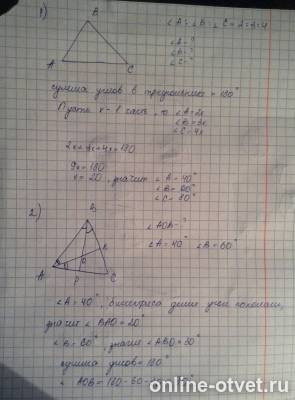 1)
B
A
C
∠A : ∠B : ∠C = 2:3:4
∠A - ?
∠B - ?
∠C - ?
сумма углов в треугольнике = 180°
Пусть x - 1 часть, то ∠A = 2x
∠B = 3x
∠C = 4x
2x+3x+4x=180
9x=180
x = 20, значит ∠A = 40°
∠B = 60°
∠C = 80°
2)
B
A
C
P
O
∠AOB - ?
∠A = 40° ∠B = 60°
∠A = 40°, биссектриса делит угол пополам,
значит ∠BAO = 20°
∠B = 60°, значит ∠ABO = 30°
сумма углов = 180°
∠AOB = 180-
online-otvet.ru